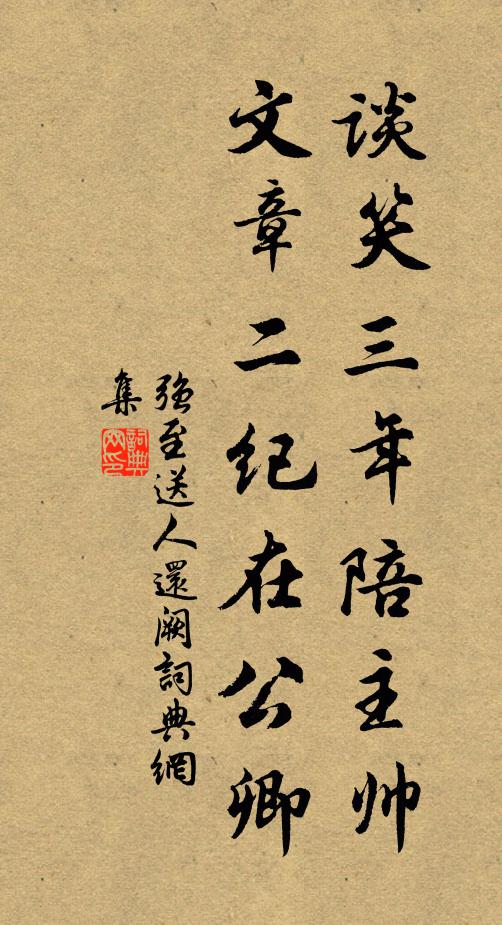 谈笑三年陪主帅
文章二纪在公卿
强至送人還阙詞典網
集
詞典网印